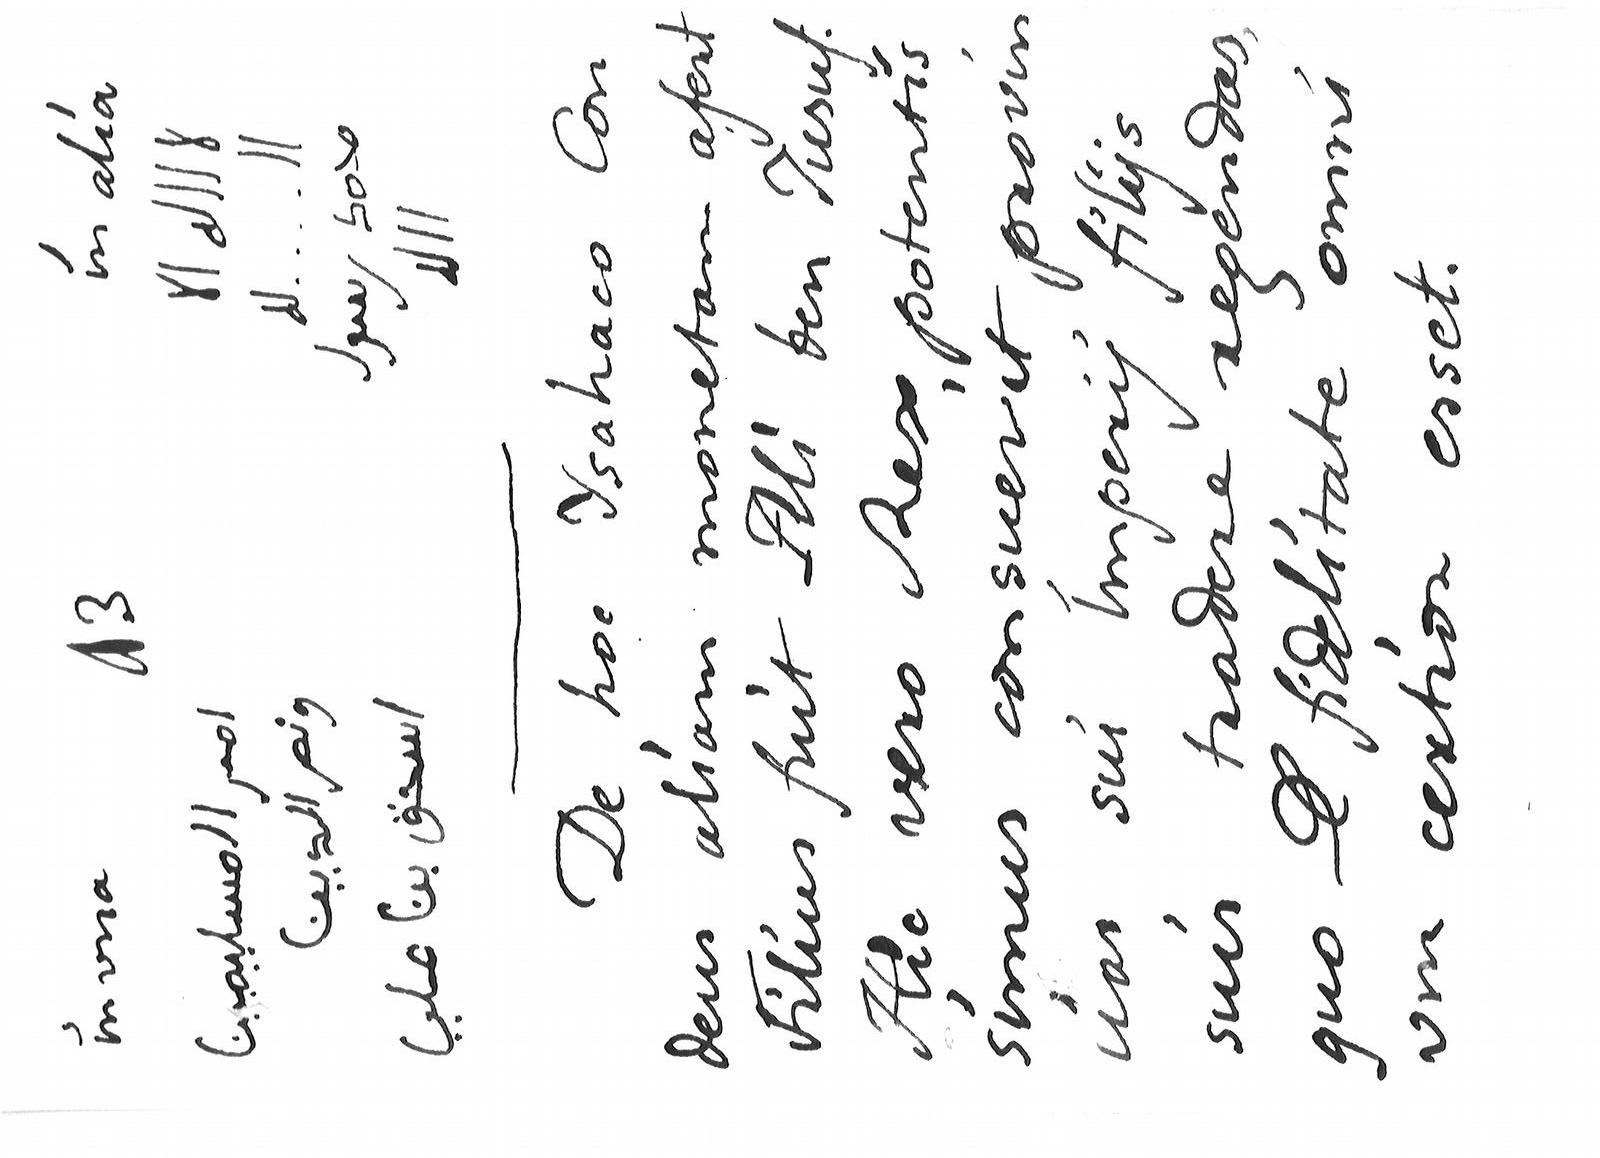 in vna A3 in alia
امير المسلمين لا اله الا
الدين
اسحق بن علي محمد رسول
الله
De hoc Ysahaco Con
deus aliam monetam afert
Filius fuit Ali ben Jusuf.
Hic vero Rex potentis
simus consuevit provin
cias sui Imperij filijs
suis tradere regendas,
quo & fidelitate omni
um certior esset.